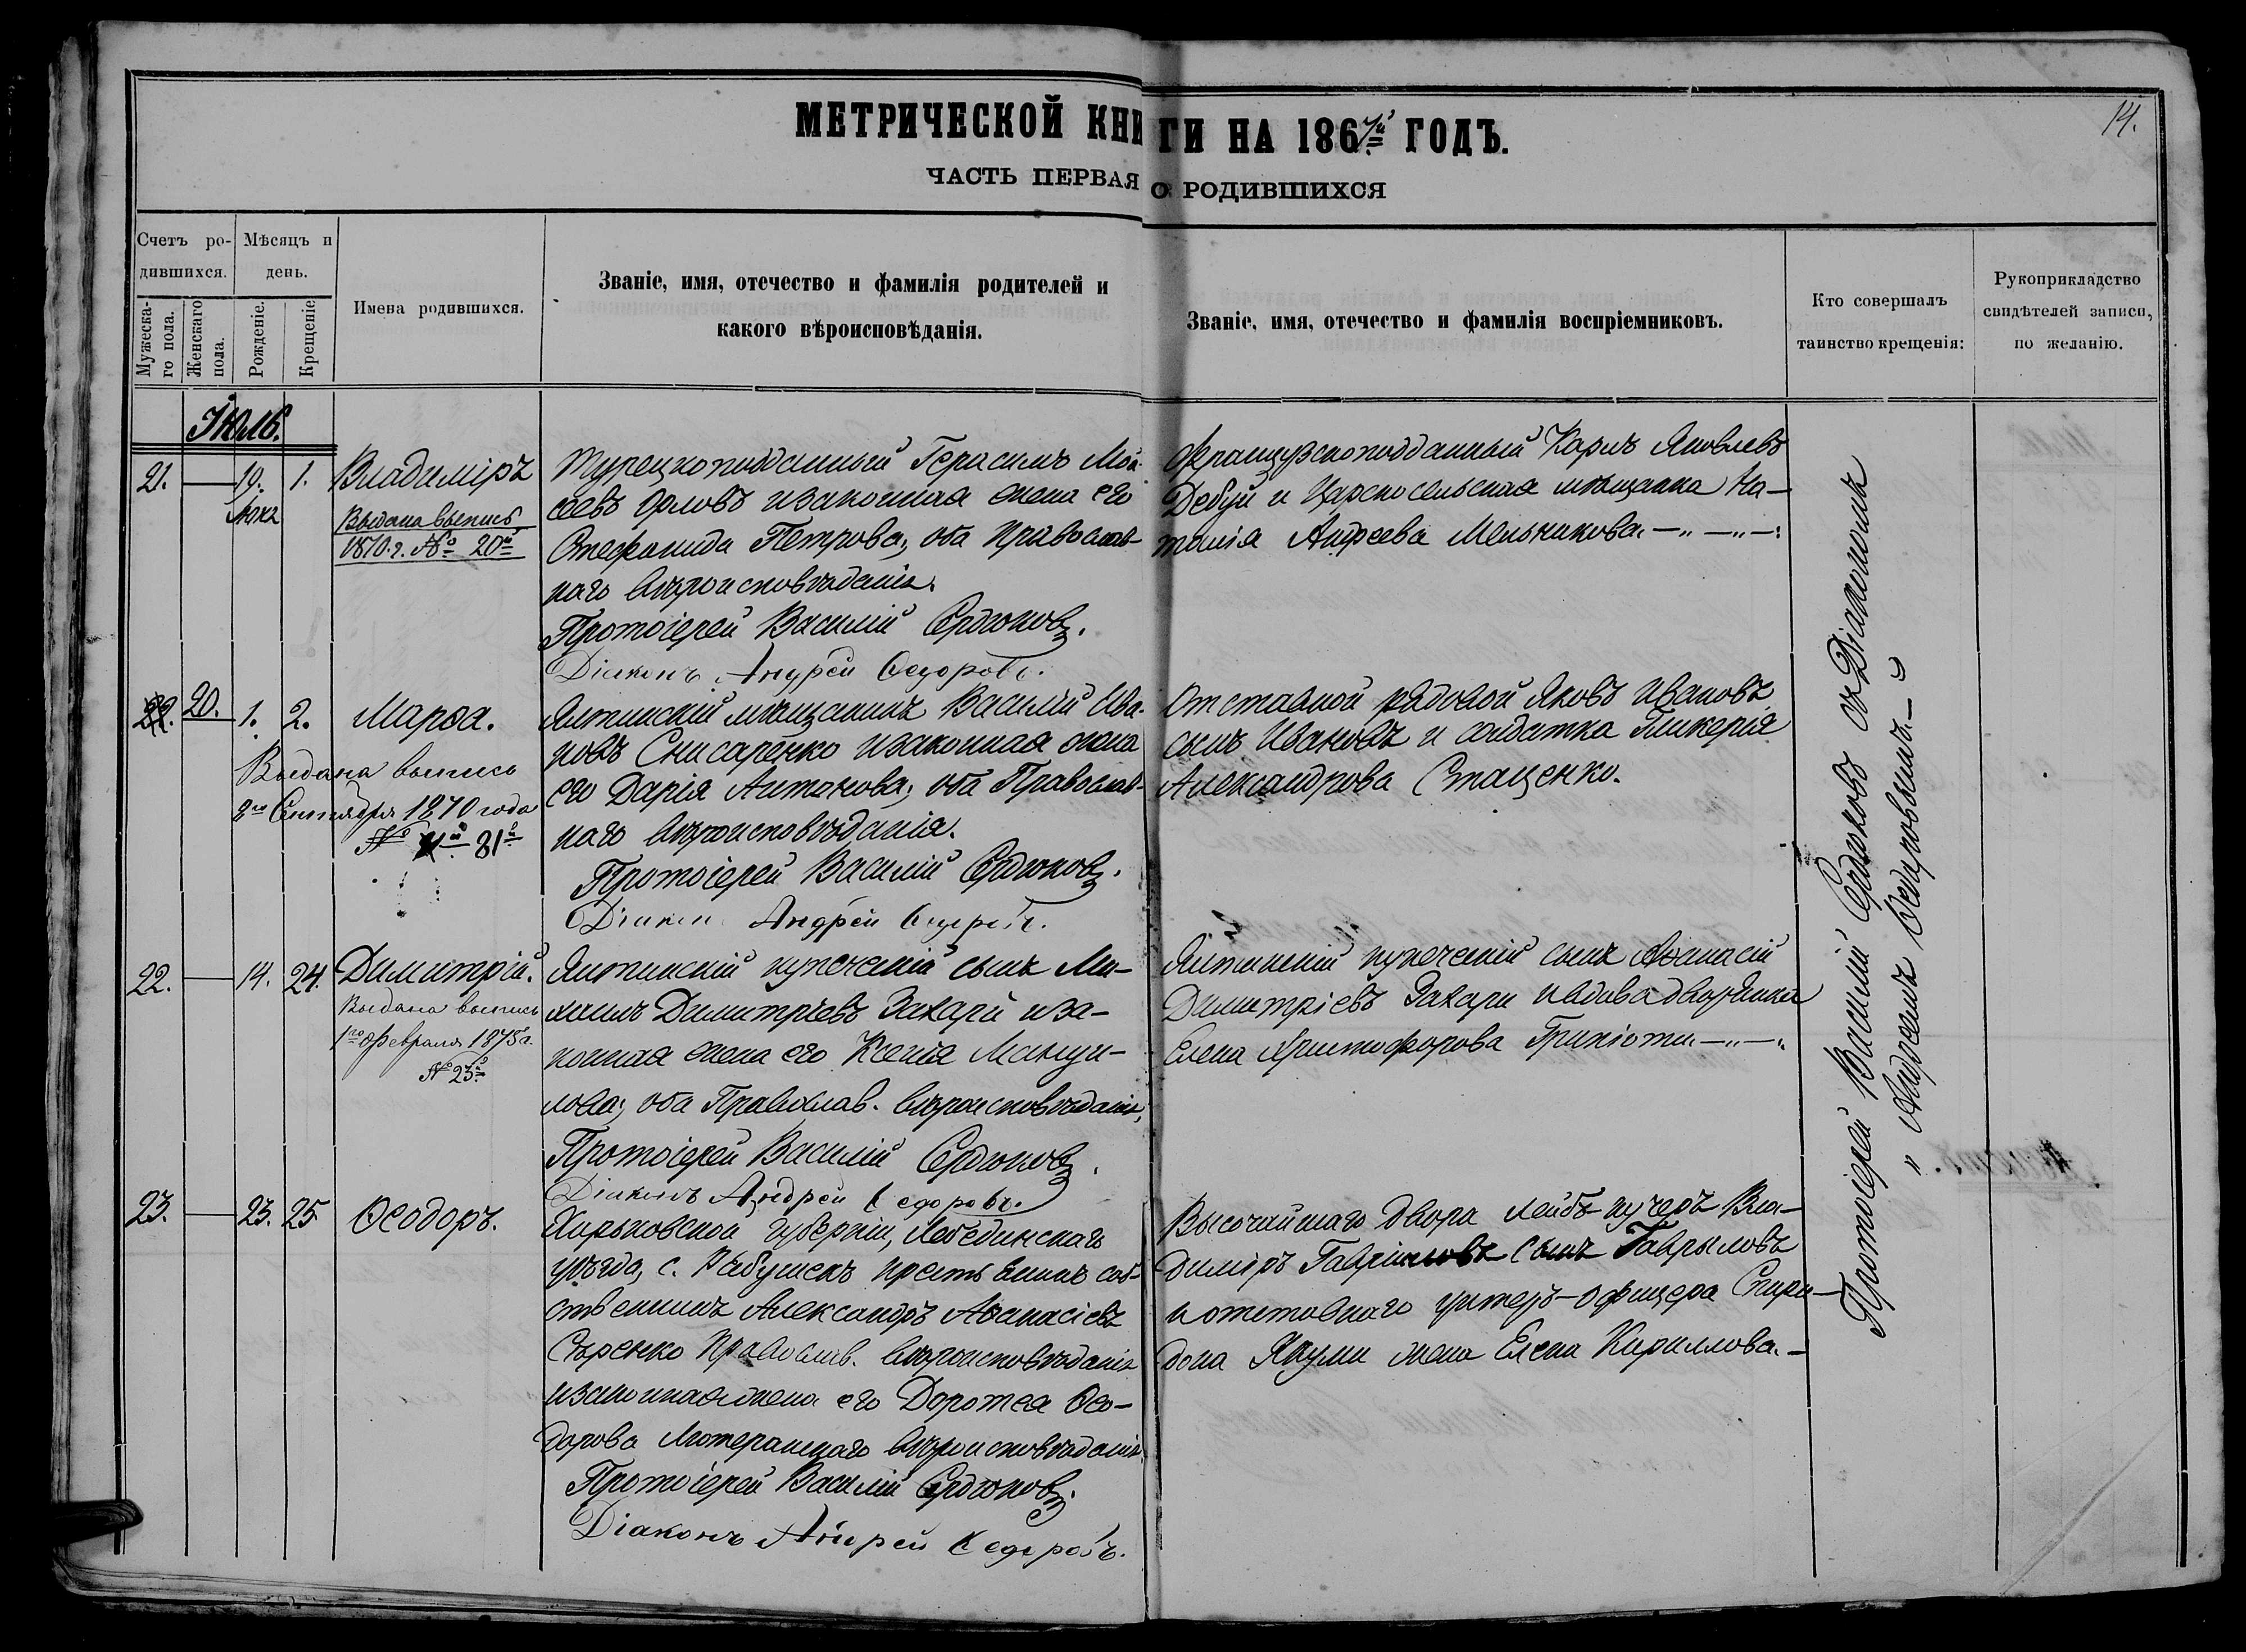 МЕТРИЧЕСКОЙ КНИГИ НА 1867й ГОДЪ.
14.
ЧАСТЬ ПЕРВАЯ О РОДИВШИХСЯ
Счетъ ро-
дившихся.
Мужеска-
го пола.
Женскаго
пола.
Мѣсяцъ и
день.
Рожденіе.
Крещеніе
Имена родившихся.
Званіе, имя, отечество и фамилія родителей и
какого вѣроисповѣданія.
Званіе, имя, отечество и фамилія воспріемниковъ.
Кто совершалъ
таинство крещенія:
Рукоприкладство
свидѣтелей записи,
по желанію.
Іюль.
21. — 19. 1. Владиміръ
Выдана выпись
1870.г. № 20й
Турецкоподданный Герасимъ Мои-
сеевъ Орловъ изаконная жена его
Стефанида Петрова, оба Православ-
наго вѣроисповѣданія.
Протоіерей Василій Сердюковъ.
Діаконъ Андрей Ѳедоровъ.
Французскоподданный Карлъ Яковлевъ
Дебуи и Царскосельская мѣщанка На-
талія Андреева Мельникова.—„—„—:
22. 20. 1. 2. Марѳа.
Выдана выпись
8го Сентября 1870 года
№ 81й
Ялтинскій мѣщанинъ Василій Ива-
новъ Снисаренко изаконная жена
его Дарія Антонова, оба Православ-
наго вѣроисповѣданія.
Протоіерей Василій Сердюковъ.
Діаконъ Андрей Ѳедоровъ.
Отставной рядовой Яковъ Ивановъ
сынъ Ивановъ и солдатка Гликерія
Александрова Стаценко.
22. — 14. 24. Димитрій.
Выдана выпись
1го Февраля 1875г.
№ 23й
Ялтинскій купеческій сынъ Ми-
хаилъ Димитріевъ Захари иза-
конная жена его Ксенія Мануи-
лова; оба Православ. вѣроисповѣданія,
Протоіерей Василій Сердюковъ.
Діаконъ Андрей Ѳедоровъ.
Ялтинскій купеческій сынъ Аѳанасій
Димитріевъ Захари ивдова дворянка
Елена Христофорова —„—„
23. — 23. 25. Ѳеодоръ.
Харьковской губерніи, Лебединскаго
уѣзда, с. Рябушекъ крестьянинъ соб-
ственникъ Александръ Аѳанасіевъ
Сѣренко Православ. вѣроисповѣданія
изаконная жена его Доротея Ѳео-
дорова Лютеранскаго вѣроисповѣданія.
Протоіерей Василій Сердюковъ.
Діаконъ Андрей Ѳедоровъ.
Высочайшаго двора лейбъ-кучеръ Вла-
диміръ Гавриловъ сынъ Гавриловъ
и отставнаго унтеръ-офицера Спири-
дона жена Елена Кириллова.—
Протоіерей Василій Сердюковъ съ Діакономъ
„ Андреемъ Ѳедоровымъ.—